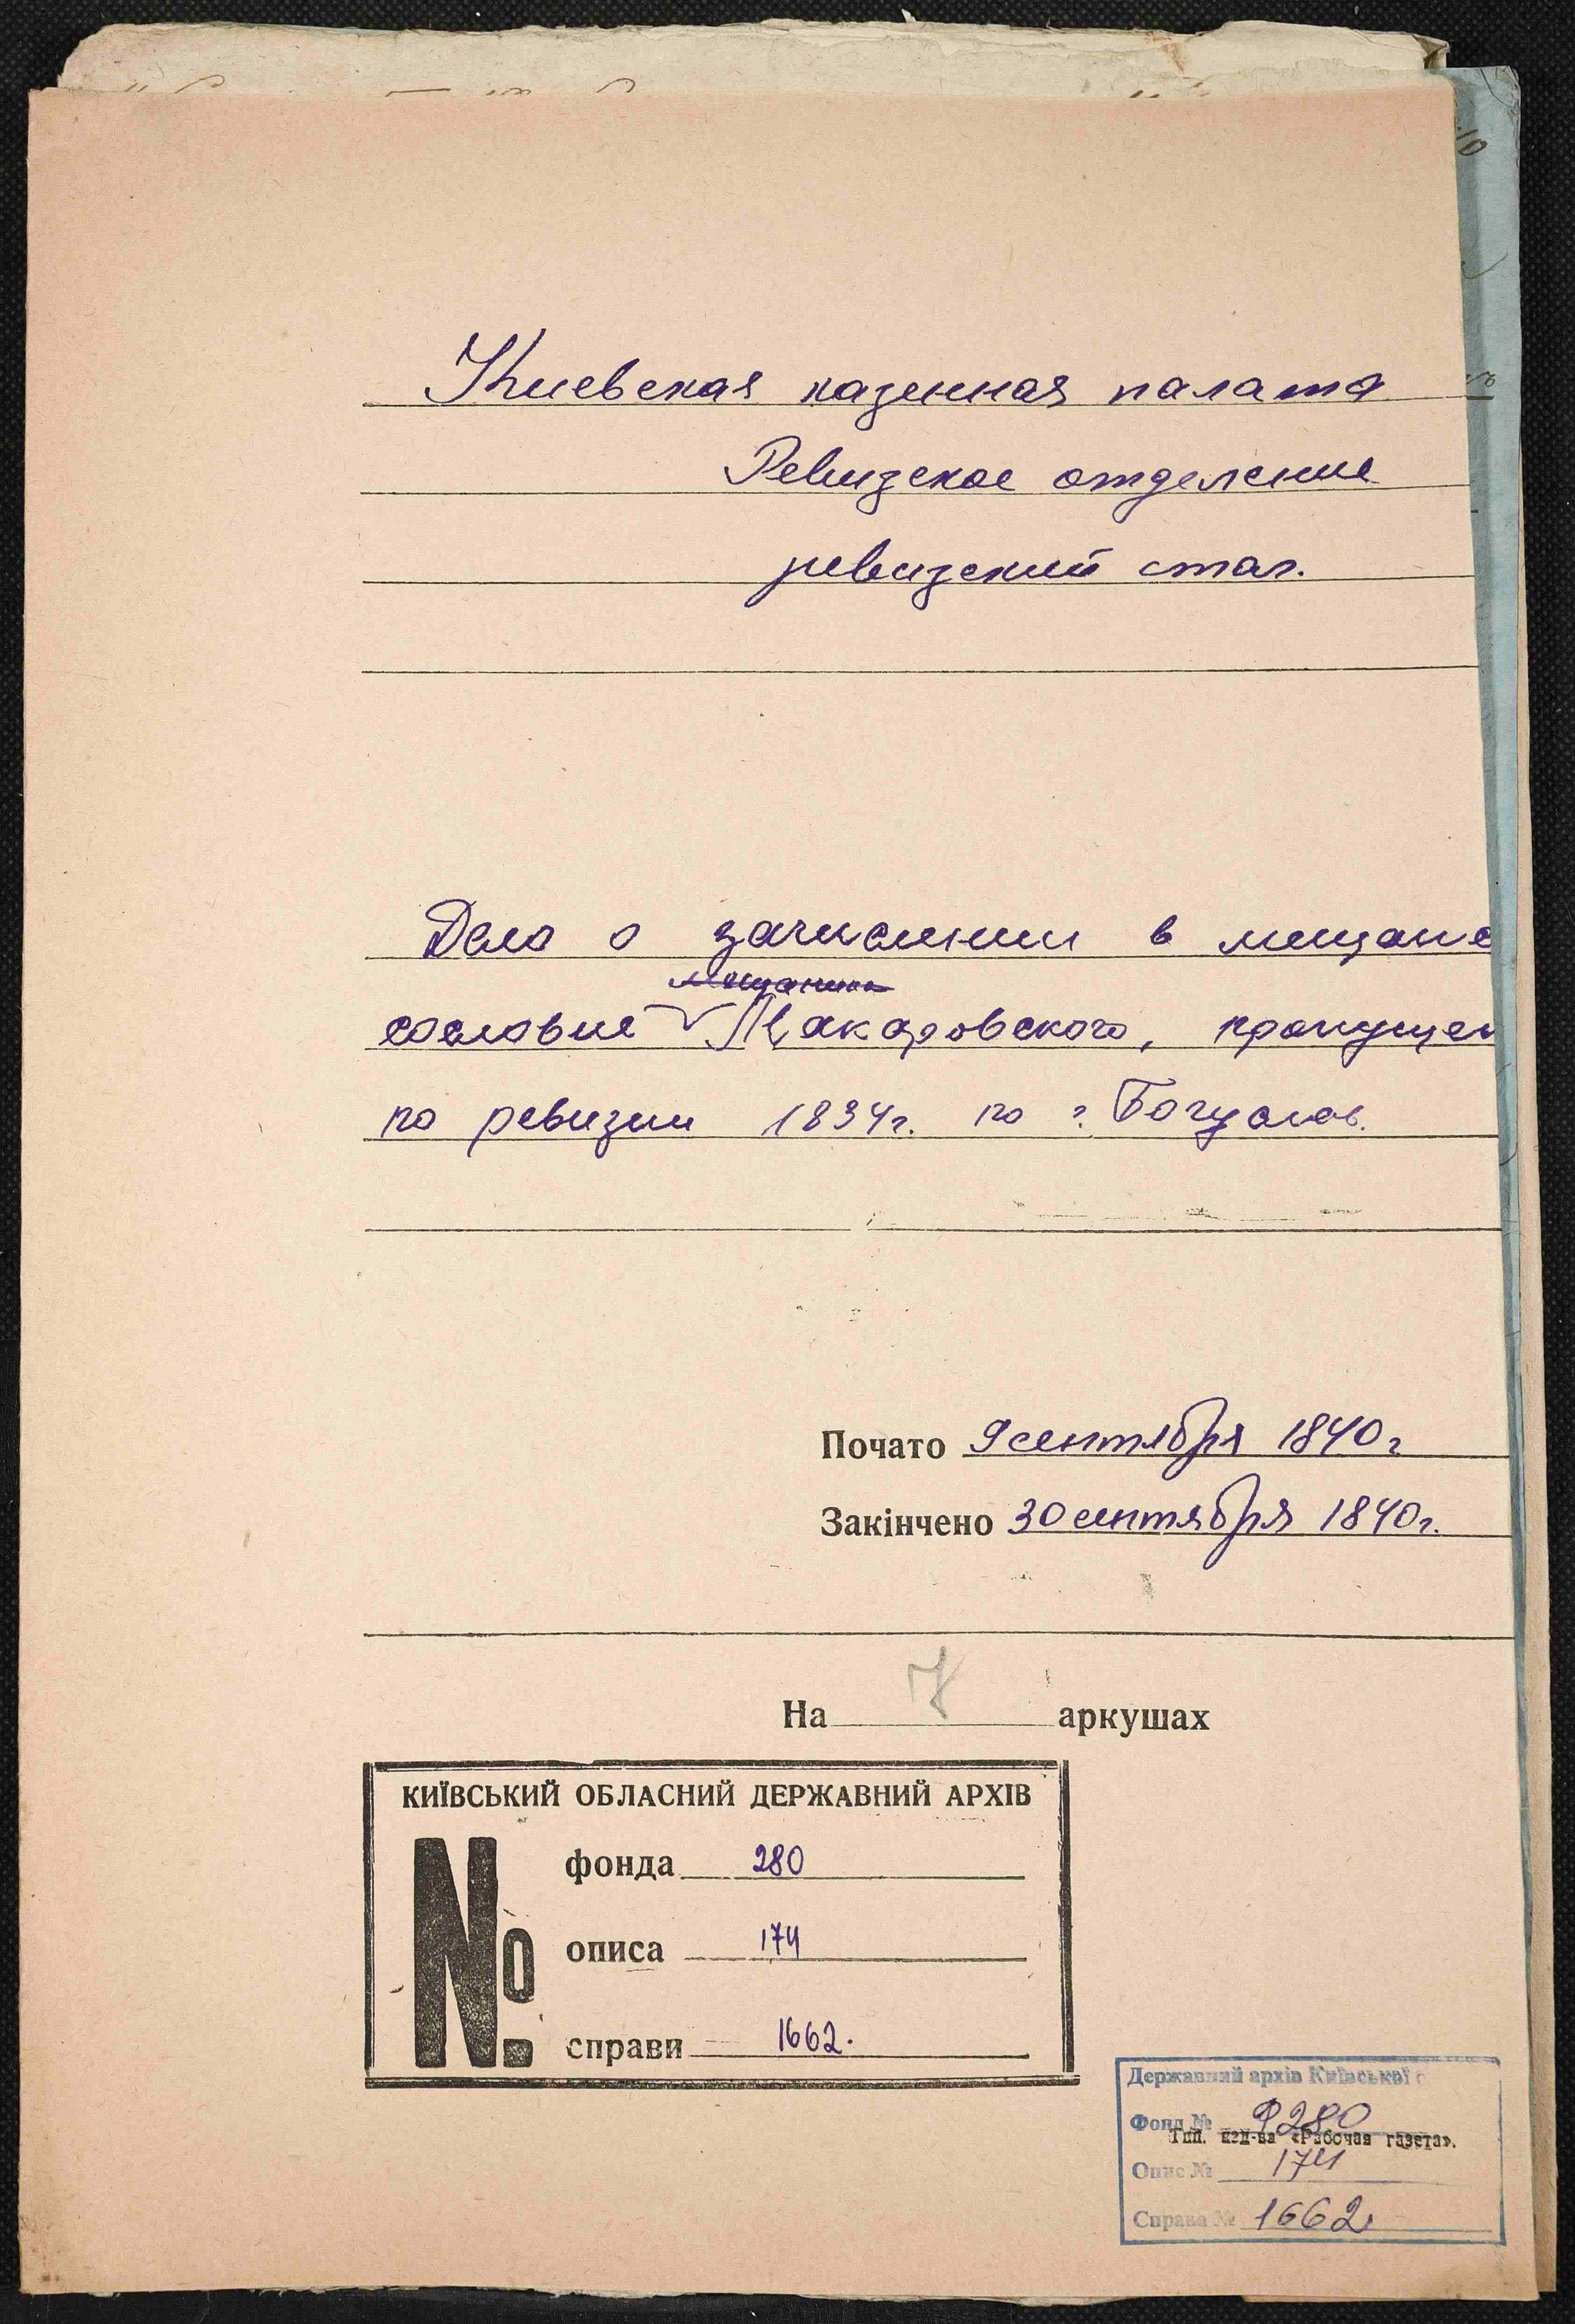 Киевская казенная палата
Ревизское отделение
ревизский стол.
Дело о зачислении в мещанс
мещанина
сословие Макаровского, пропущен
по ревизии 1834г. по г. Богуслав.
Почато 9 сентября 1840г
Закінчено 30 сентября 1840г.
На 7 аркушах
КИЇВСЬКИЙ ОБЛАСНИЙ ДЕРЖАВНИЙ АРХІВ
№
фонда 280
описа 174
справи 1662.
Державний архів Київської о
Фонд № Ф280
Тип. изд-ва «Рабочая газета».
Опис № 174
Справа № 1662